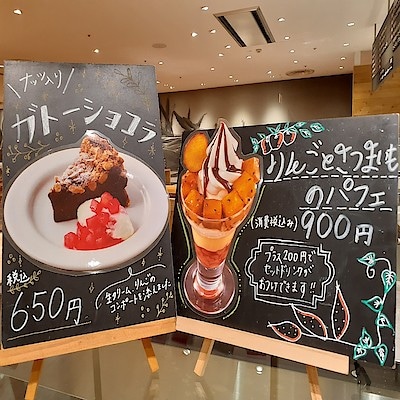 ナッツ入り
ガトーショコラ
税込
650円
生クリーム、りんごの
コンポートを添えました
りんごとさつまいも
のパフェ
(消費税込み)
900円
プラス200円で
セットドリンクが
おつけできます!!